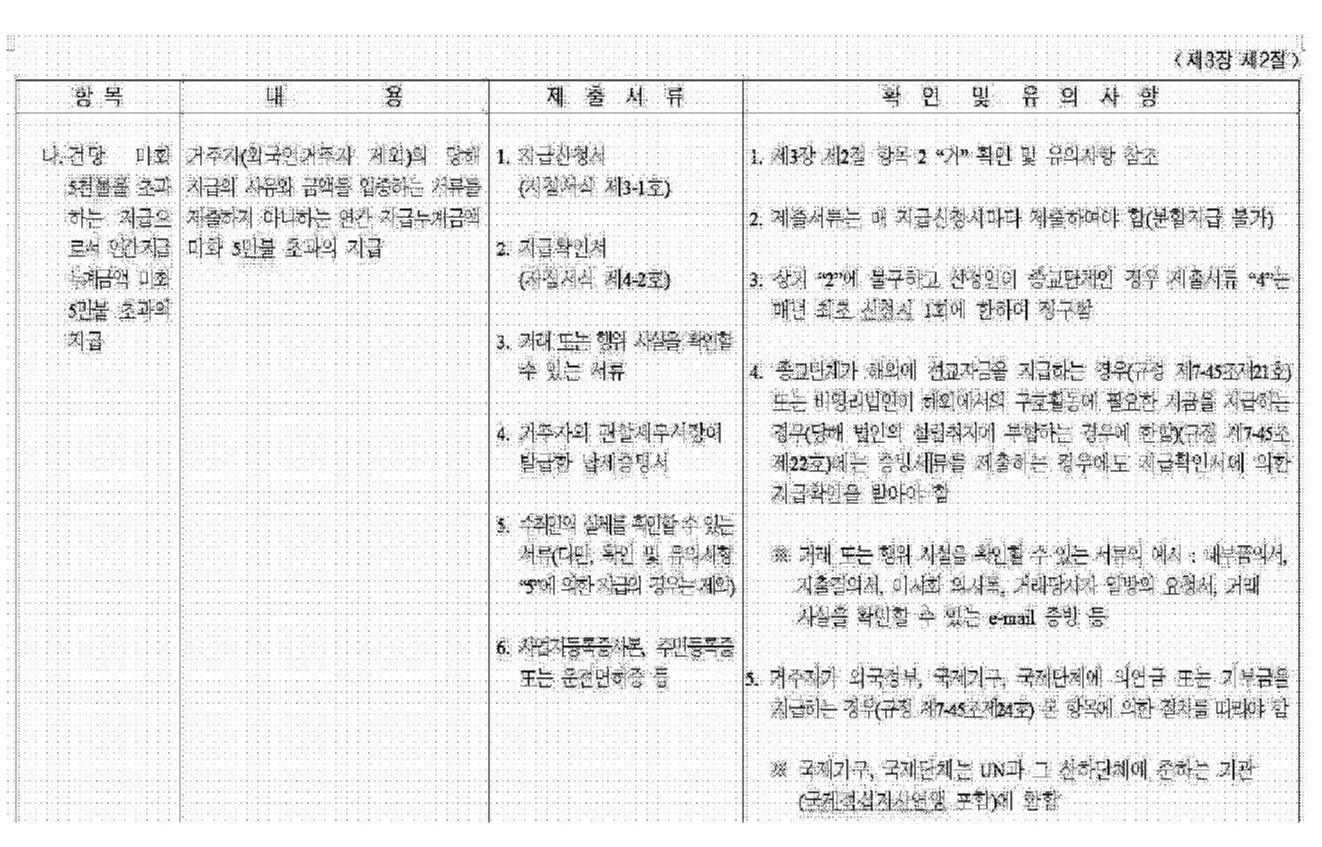 <제3장 제2절>
항 목
내 용
제 출 서 류
확 인 및 유 의 사 항
나. 건당 미화
5천불을 초과
하는 지급으
로서 연간지급
누계금액 미화
5만불 초과의
지급
거주자(외국인거주자 제외)의 당해
지급의 사유와 금액을 입증하는 서류를
제출하지 아니하는 연간 지급누계금액
미화 5만불 초과의 지급
1. 지급신청서
(지침서식 제3-1호)
2. 지급확인서
(지침서식 제4-2호)
3. 거래 또는 행위 사실을 확인할
수 있는 서류
4. 거주자의 관할세무서장이
발급한 납세증명서
5. 수취인의 실체를 확인할 수 있는
서류(다만, 확인 및 유의사항
“5”에 의한 지급의 경우는 제외)
6. 사업자등록증사본, 주민등록증
또는 운전면허증 등
1. 제3장 제2절 항목 2 “거” 확인 및 유의사항 참조
2. 제출서류는 매 지급신청시마다 제출하여야 함(분할지급 불가)
3. 상기 “2”에 불구하고 신청인이 종교단체인 경우 제출서류 “4”는
매년 최초 신청시 1회에 한하여 징구함
4. 종교단체가 해외에 선교자금을 지급하는 경우(규정 제7-45조제21호)
또는 비영리법인이 해외에서의 구호활동에 필요한 자금을 지급하는
경우(당해 법인의 설립취지에 부합하는 경우에 한함)(규정 제7-45조
제22호)에는 증빙서류를 제출하는 경우에도 지급확인서에 의한
지급확인을 받아야 함
※ 거래 또는 행위 사실을 확인할 수 있는 서류의 예시 : 내부품의서,
지출결의서, 이사회 의사록, 거래당사자 일방의 요청서, 거래
사실을 확인할 수 있는 e-mail 증빙 등
5. 거주자가 외국정부, 국제기구, 국제단체에 의연금 또는 기부금을
지급하는 경우(규정 제7-45조제24호) 본 항목에 의한 절차를 따라야 함
※ 국제기구, 국제단체는 UN과 그 산하단체에 준하는 기관
(국제적십자사연맹 포함)에 한함